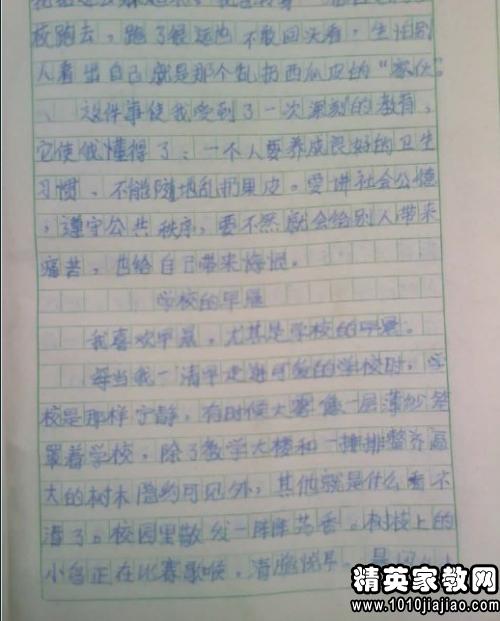 校跑去，跑了很远也不敢回头看，生怕别
人看出自己就是那个乱扔西瓜皮的“家伙”
这件事使我受到了一次深刻的教育，
它使我懂得了：一个人要养成良好的卫生
习惯、不能随地乱扔果皮。要讲社会公德
，遵守公共秩序，要不然就会给别人带来
痛苦，也给自己带来悔恨。
学校的早晨
我喜欢早晨。尤其是学校的早晨。
每当我一清早走进可爱的学校时，学
校是那样宁静，有时候大雾像一层薄纱笼
罩着学校，除了教学大楼和一排排整齐高
大的树木隐约可见外，其他就是什么看不
清了。校园里散发一阵阵芳香。树枝上的
小鸟正在比赛歌喉，清脆悦耳。
精英家教网
www.1010jiajiao.com